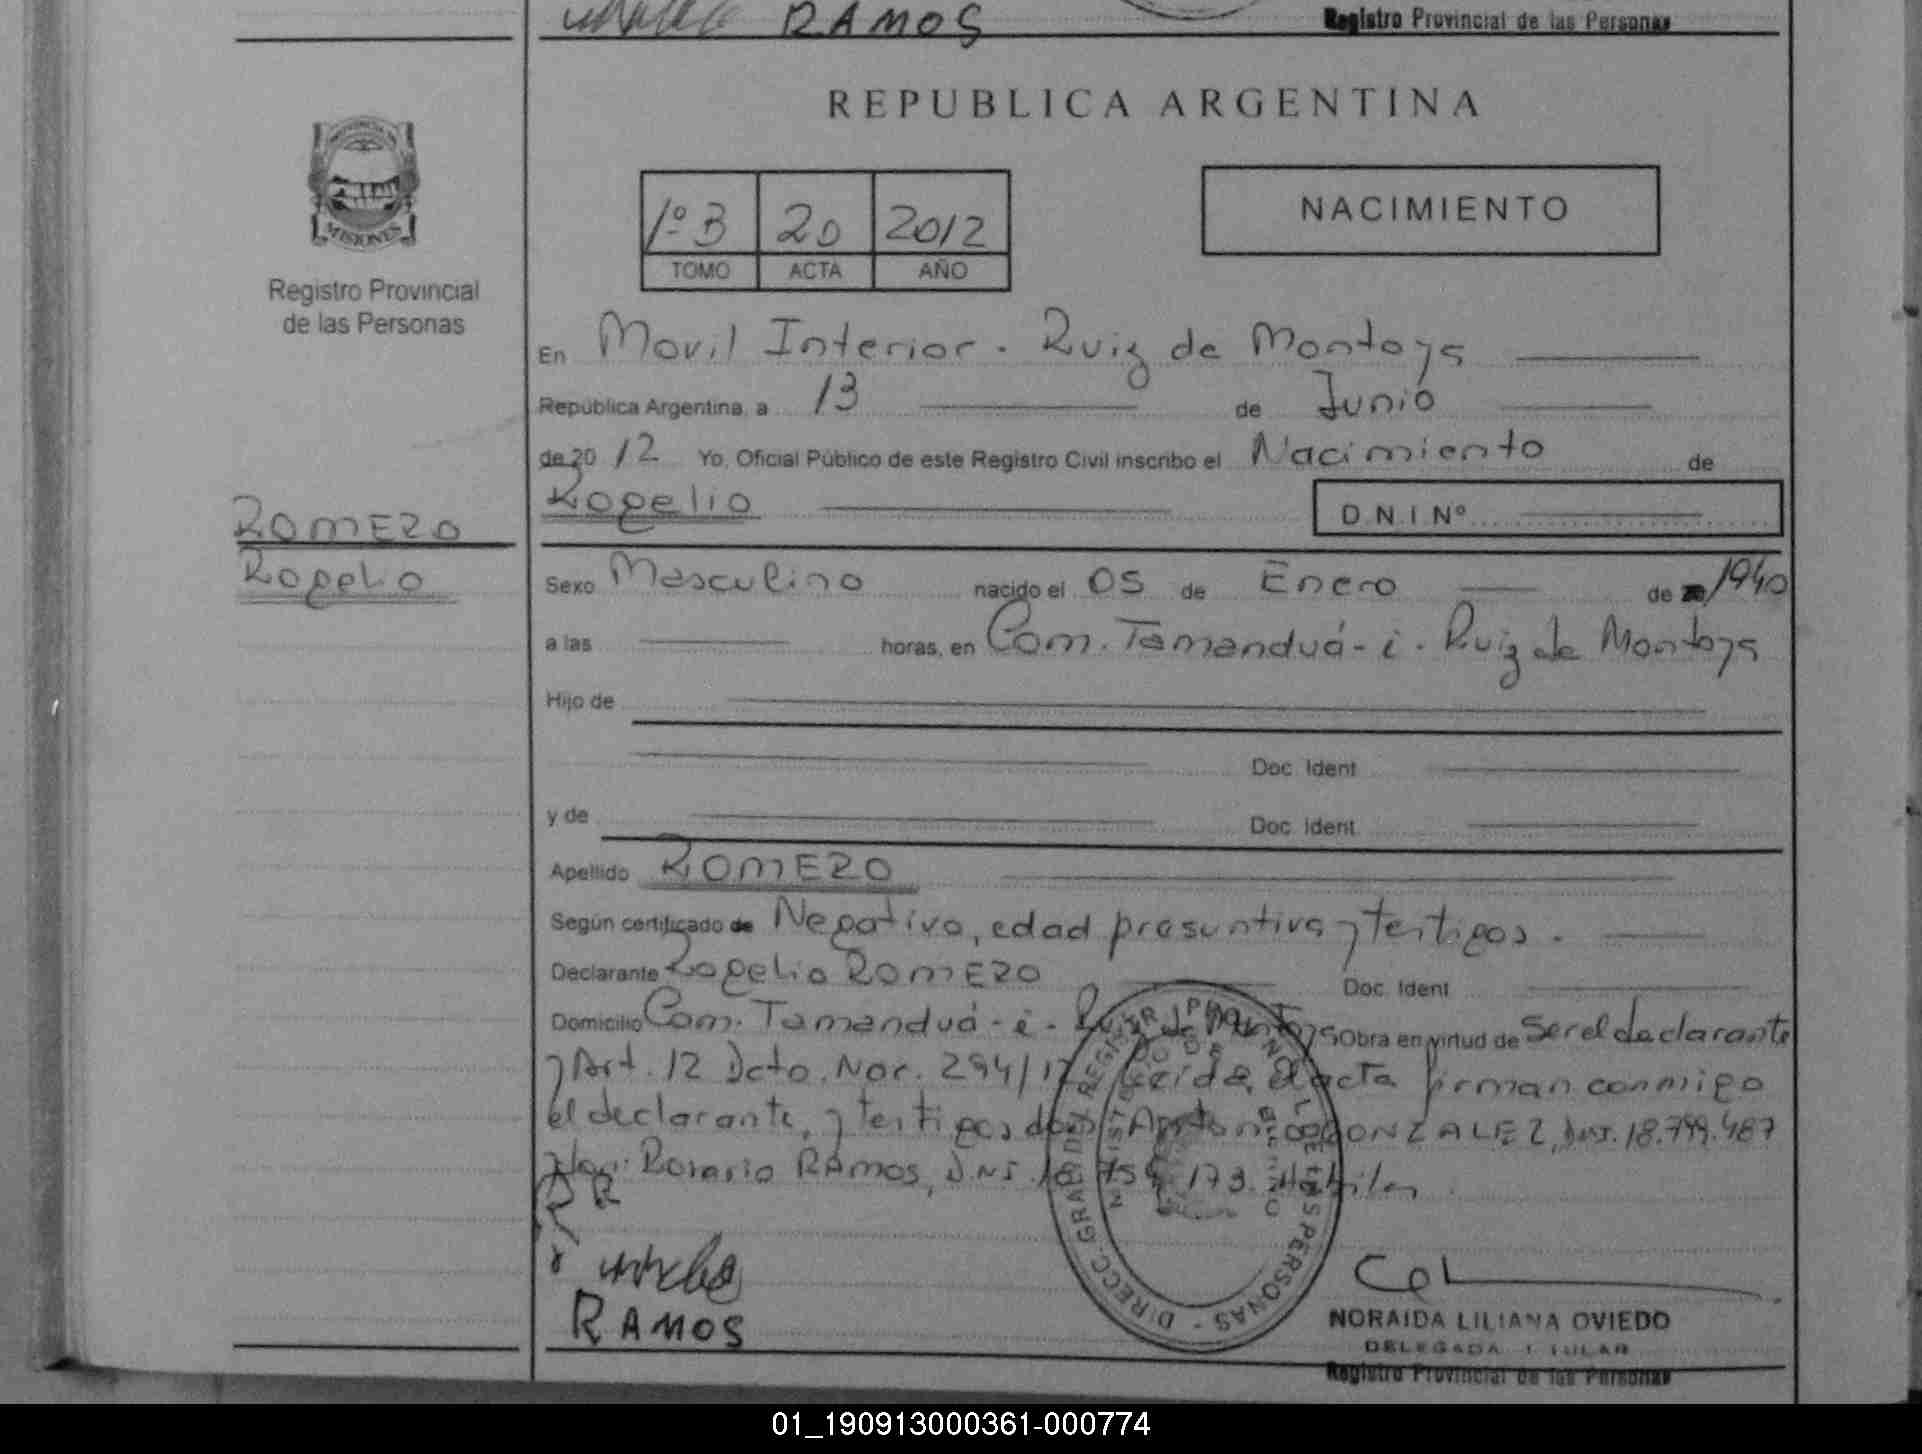 RAMOS
Registro Provincial de las Personas
REPUBLICA ARGENTINA
PROVINCIA DE
MISIONES
Registro Provincial
de las Personas
1º B 20 2012
TOMO ACTA AÑO
NACIMIENTO
En Movil Interior. Ruiz de Montoya
República Argentina, a 13 de Junio
de 20 12 Yo, Oficial Público de este Registro Civil inscribo el Nacimiento de
Rogelio D.N.I. Nº
ROMERO
Rogelio
Sexo Masculino nacido el 05 de Enero de 1940
a las horas, en Com. Tamanduá-i. Ruiz de Montoya
Hijo de
Doc. Ident.
y de Doc. Ident.
Apellido ROMERO
Según certificado de Negativo, edad presuntiva y testigos.
Declarante Rogelio ROMERO Doc. Ident.
Domicilio Com. Tamanduá-i. Ruiz de Montoya Obra en virtud de Ser el declarante
y Art. 12 Dcto. Nac. 294/12 Leida el acta firman conmigo
el declarante, y testigos don Antonio GONZALEZ, DNI. 18.799.487
y don: Rosario RAMOS, D.NI. 18 759 173. Habiles
RR
RAMOS
DIRECC. GRAL. DEL REGISTR. PROVINC. DE LAS PERSONAS
NORAIDA LILIANA OVIEDO
DELEGADA TITULAR
Registro Provincial de las Personas
01_190913000361-000774